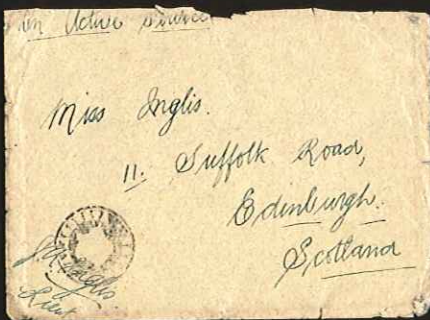 On Active Service
Miss Inglis.
11. Suffolk Road,
Edinburgh.
Scotland
Inglis.
Lieut